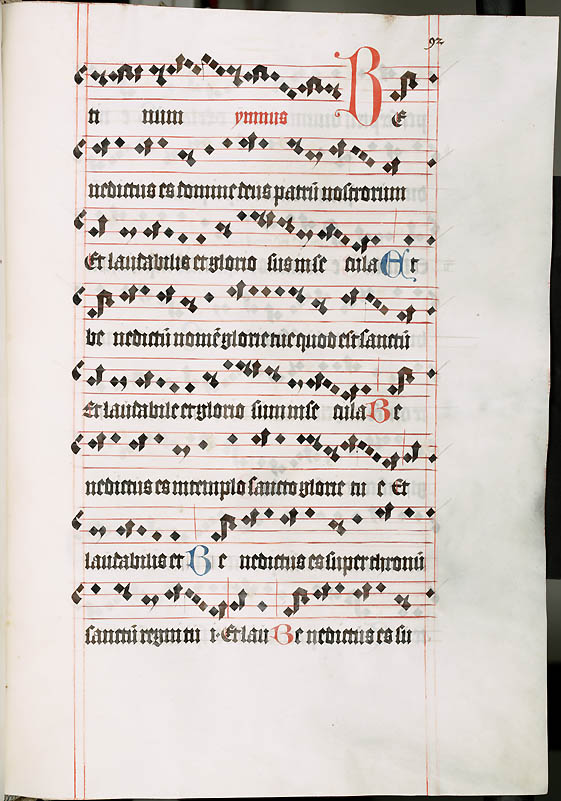 92
ni num ymnus BE
nedictus es domine deus patrū nostrorum
Et laudabilis et glorio sus in se cula Et
be nedictū nomē glorie tue quod est sanctū
Et laudabile et glorio sum in se cula Be
nedictus es in templo sancto glorie tu e Et
laudabilis et Be nedictus es super thronū
sanctū regni tu i. Et lau Be nedictus es su